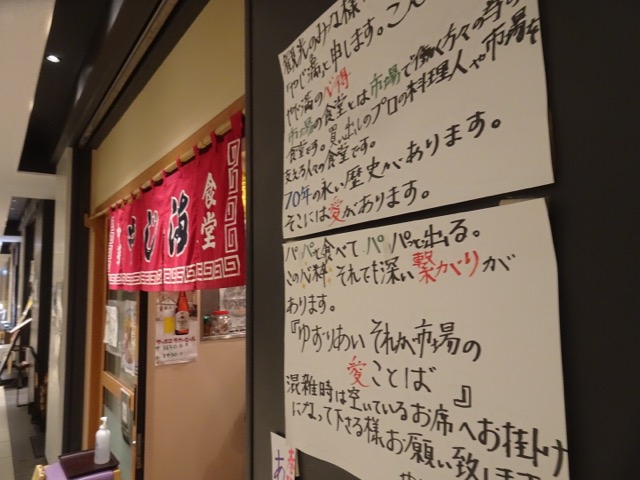 観光のみな様
やじ満と申します。こん
やじ満の心得
市場の食堂とは市場で働く方々の為の
食堂です。買い出しのプロの料理人や市場を
支える人々の食堂です。
70年の永い歴史があります。
そこには愛があります。
パパッと食べてパパッと出る。
この心粋 それでも深い繋がりが
あります。
『ゆずりあい それが市場の
愛ことば』
混雑時は空いているお席へお掛け
になって下さる様お願い致します
食堂
やじ満